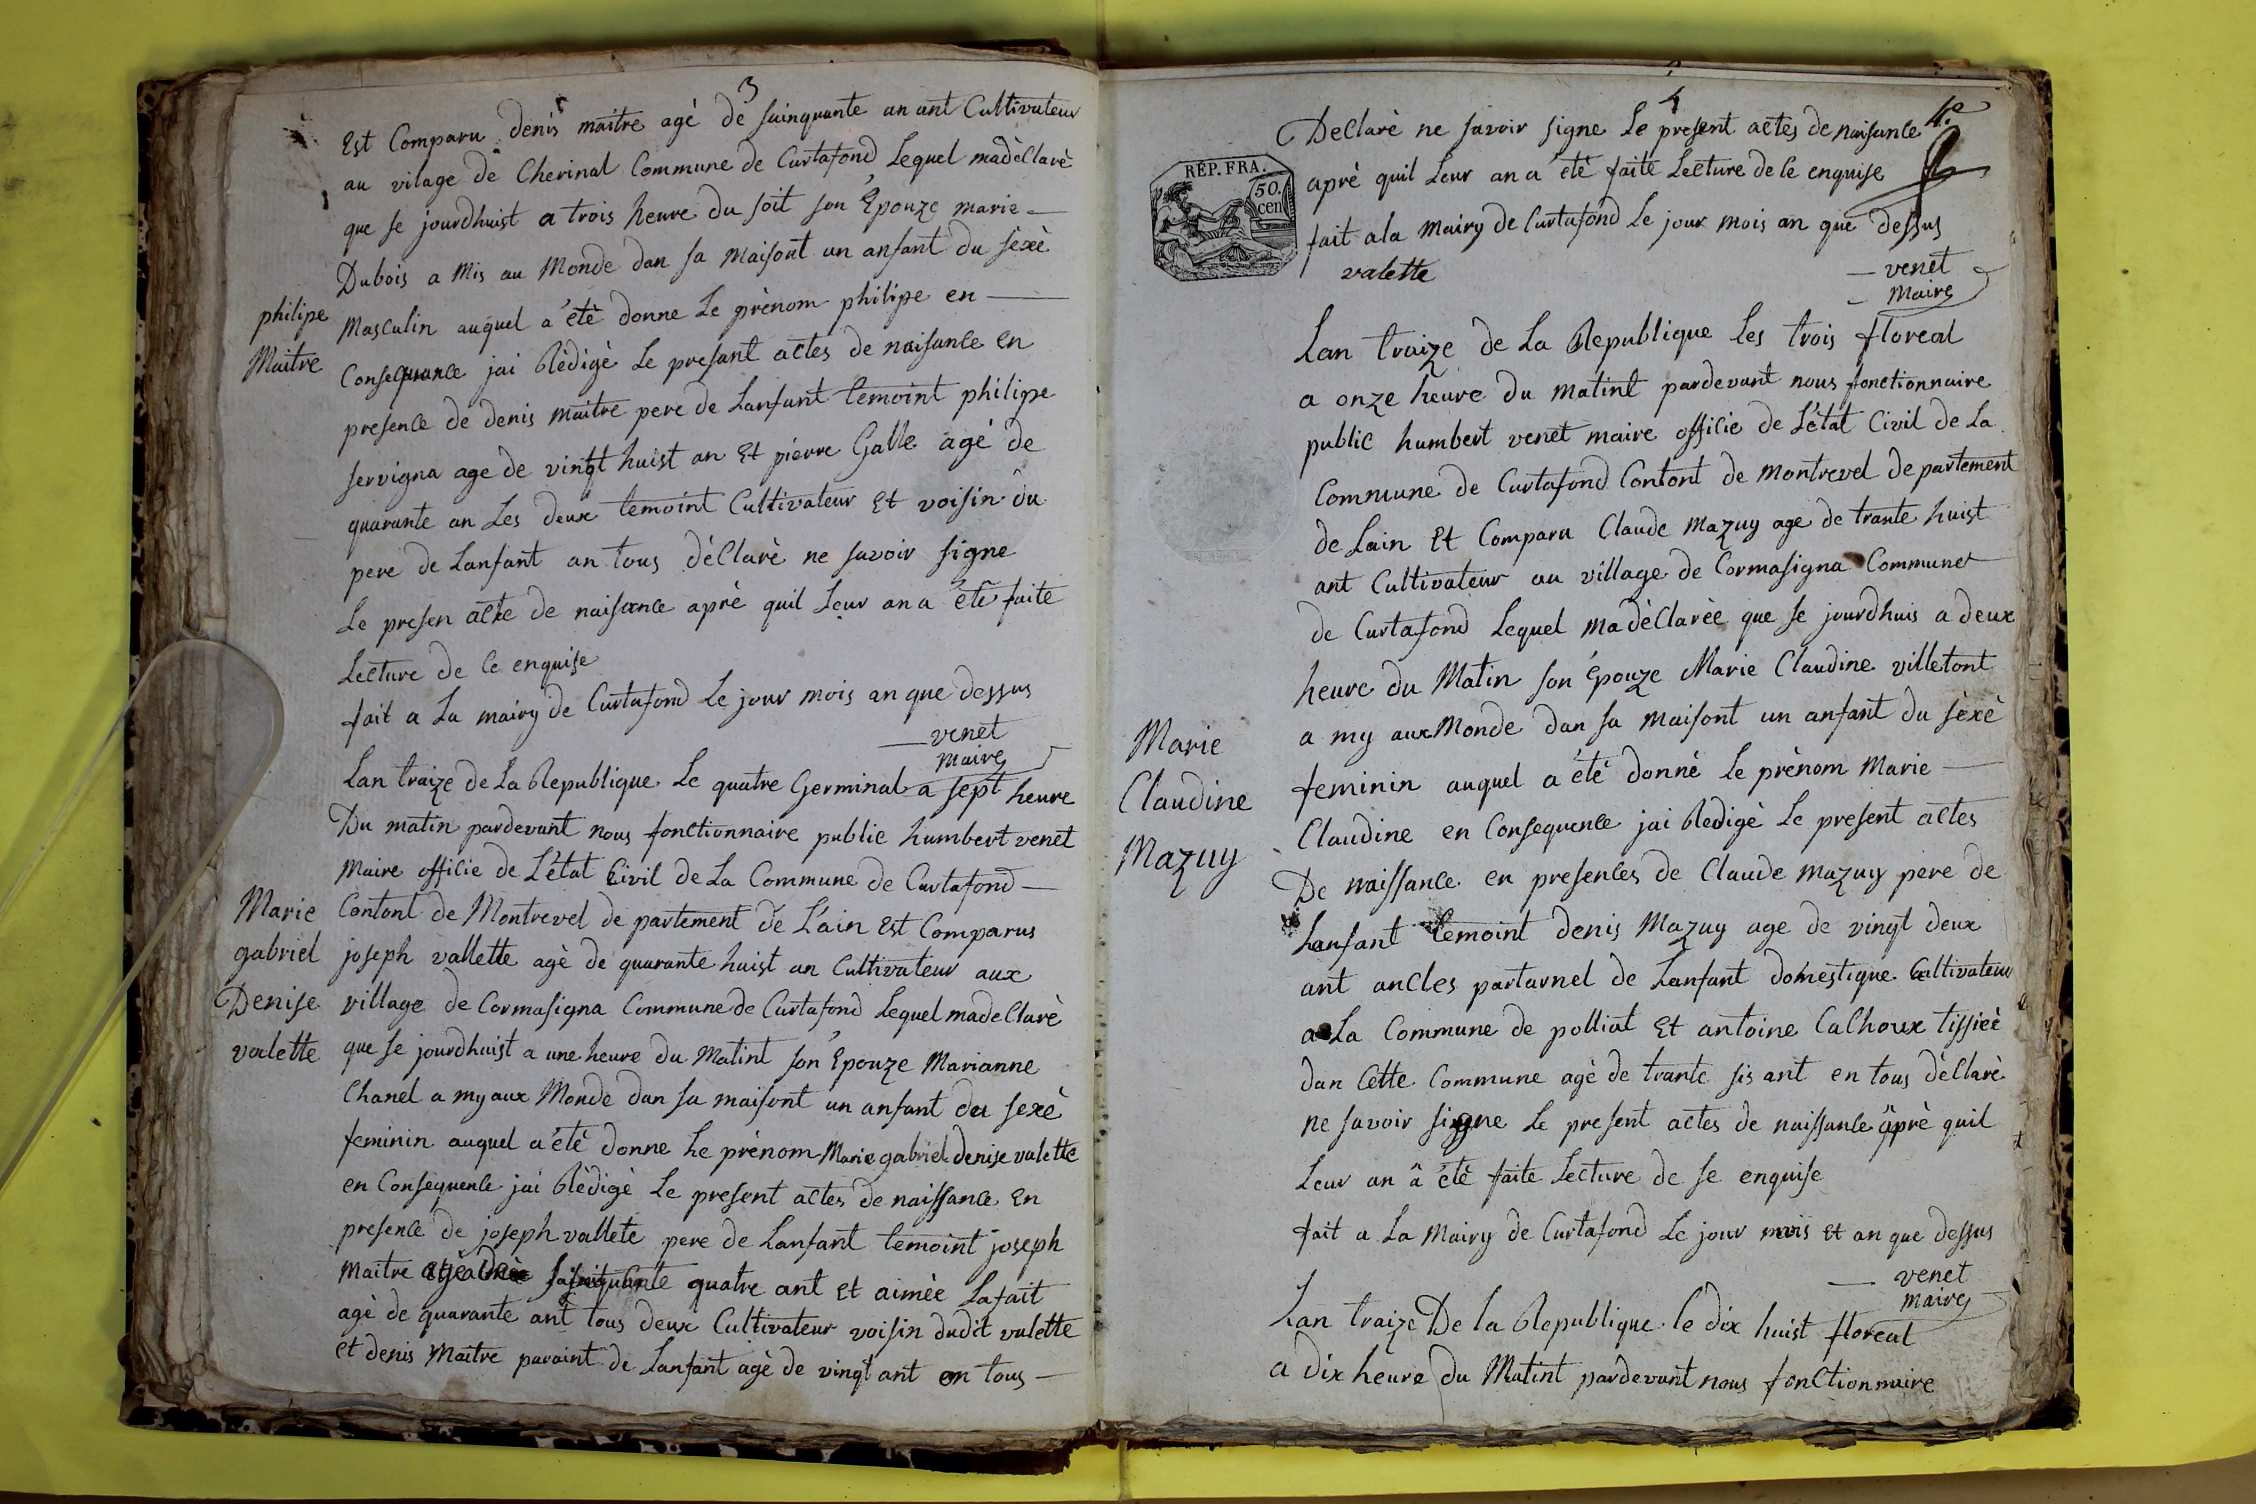 3
Est Comparu denis maitre agè de sainquante an ant Cultivateur
au vilage de Cherinal Commune de Curtafond Lequel madèClarè
que se jourdhuist a trois heure du soit son Epouze marie
Dubois a Mis au Monde dan sa Maisont un anfant du sèxè
Masculin auquel a étè donne Le prènom philipe en
philipe
Maitre
Consequance jai Rèdigè Le presant actes de naisance en
presence de denis maitre pere de Lanfant temoint philipe
servigna age de vingt huist an Et pierre Galle agè de
quarante an Les deux temoint Cultivateur Et voisin du
pere de Lanfant an tous dèClarè ne savoir signe
Le presen acte de naisance aprè quil Leur an a étè faite
Lecture de Ce enquise
fait a La mairy de Curtafond Le jour mois an que dessus
venet
Maire
Lan traize de La Republique Le quatre Germinal a sept heure
Du matin pardevant nous fonctionnaire public humbert venet
Maire officie de L'état Civil de La Commune de Curtafond
Contont de Montrevel de partement de L'ain Est Comparus
joseph vallette agè de quarante huist an Cultivateur aux
village de Cormasigna Commune de Curtafond Lequel madeClarè
que se jourdhuist a une heure du Matint son Epouze Marianne
Chanel a my aux Monde dan sa maisont un anfant du sexè
feminin auquel a étè donne Le prènom Marie gabriel denise valette
Marie
gabriel
Denise
valette
en Consequence jai Rèdigè Le present actes de naissance En
presence de joseph vallete pere de Lanfant temoint joseph
Maitre quatre ant Et aimèe Lafait
agè de quarante ant tous deux Cultivateur voisin dudit valette
et denis Maitre paraint de Lanfant agè de vingt ant en tous
4
4e
DeClarè ne savoir signe Le present actes de naisance
RÉP. FRA.
50.
cen
aprè quil Leur an a étè faite Lecture de Ce enquise
fait a la Mairy de Curtafond Le jour mois an que dessus
valette
venet
Maire
Lan traize de La Republique Les trois floreal
a onze heure du Matint pardevant nous fonctionnaire
public humbert venet maire officie de L'état Civil de La
Commune de Curtafond Contont de Montrevel de partement
de Lain Et Comparu Claude Mazuy age de trante huist
ant Cultivateur au village de Cormasigna Commune
de Curtafond Lequel madèClarèe que se jourdhuis a deux
heure du Matin son épouze Marie Claudine villetont
a my aux Monde dan sa Maisont un anfant du sèxè
feminin auquel a été donnè Le prènom Marie
Marie
Claudine
Mazuy
Claudine en Consequence jai Redigè Le present actes
De naissance en presences de Claude Mazuy pere de
Lanfant temoint denis Mazuy age de vingt deux
ant ancles partarnel de Lanfant domestique Cultivateur
a La Commune de polliat Et antoine Calhoux tissieè
dan Cette Commune agè de trante sis ant en tous dèClarè
ne savoir signe Le present actes de naissance aprè quil
Leur an a étè faite Lecture de se enquise
fait a La Mairy de Curtafond Le jour mois et an que dessus
venet
maire
Lan traize De la Republique le dix huist floreal
a dix heure du Matint pardevant nous fonctionnaire